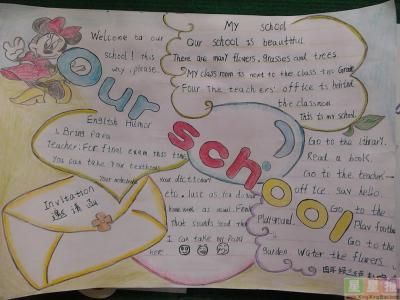 Welcome to our
school! this
way, please.
My school
Our school is beautiful
There are many flowers, grasses and trees.
My classroom is next to the class two Grade
Four The teachers' office is behind
the classroom
This is my school.
Our school
English Humor
1. Bring Papa
Teacher: For final exam this time
you can take your textbook
Your notebook
your dictionary
etc. Just as you do your
homework as usual.
That
I can take my Papa
here
Invitation
邀请函
Go to the library.
Read a book.
Go to the teacher
office. say hello.
Go to the
Playground.
Play football
Go to the
garden
Water the flowers.